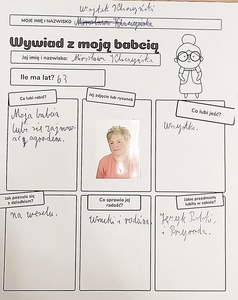 Wojtek Kluczyński
MOJE IMIĘ I NAZWISKO
Wywiad z moją babcią
Jej imię i nazwisko: Mirosława Kluczyńska
Ile ma lat? 63
Co lubi robić?
Jej zdjęcie lub rysunek
Co lubi jeść?
Moja babcia
lubi się zajmow-
ać ogrodem.
Wszystko.
Jak poznała się
z dziadkiem?
Co sprawia jej
radość?
Jakie przedmioty
lubiła w szkole?
na weselu.
Wnuki i rodzina.
Język Polski,
i Przyroda.